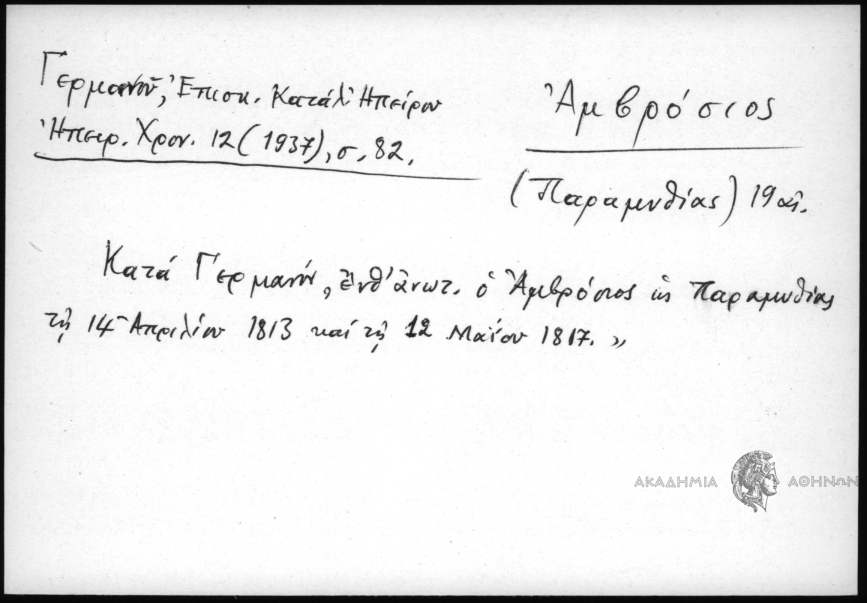 Γερμανοῦ, Ἐπισκ. Κατάλ. Ἠπείρου
Ἠπειρ. Χρον. 12 (1937), σ. 82.
Ἀμβρόσιος
(Παραμυθίας) 19 αἰ.
Κατά Γερμανόν, ἔνθ' ἄνωτ. ὁ Ἀμβρόσιος ὡς Παραμυθίας
τῇ 14 Ἀπριλίου 1813 καί τῇ 12 Μαΐου 1817. »
ΑΚΑΔΗΜΙΑ ΑΘΗΝΩΝ